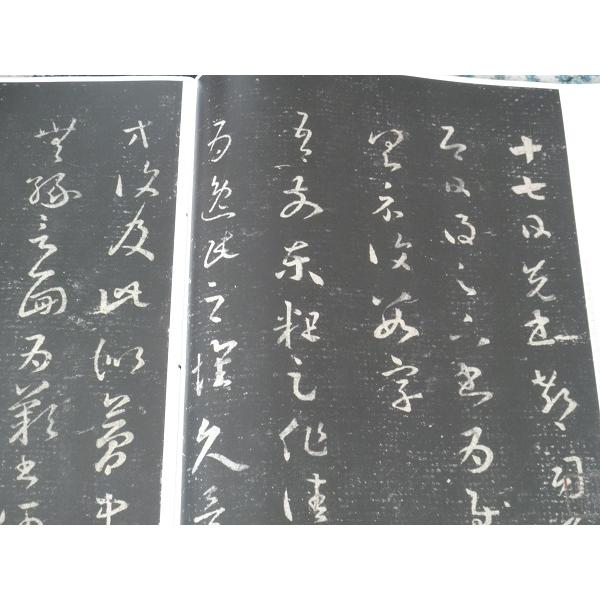 十七日先書郗司
即日得足下書為慰
具示復數字
吾前東粗足作佳
為逸民之懷久矣
方復及此似夢中
無緣言面為歎書何